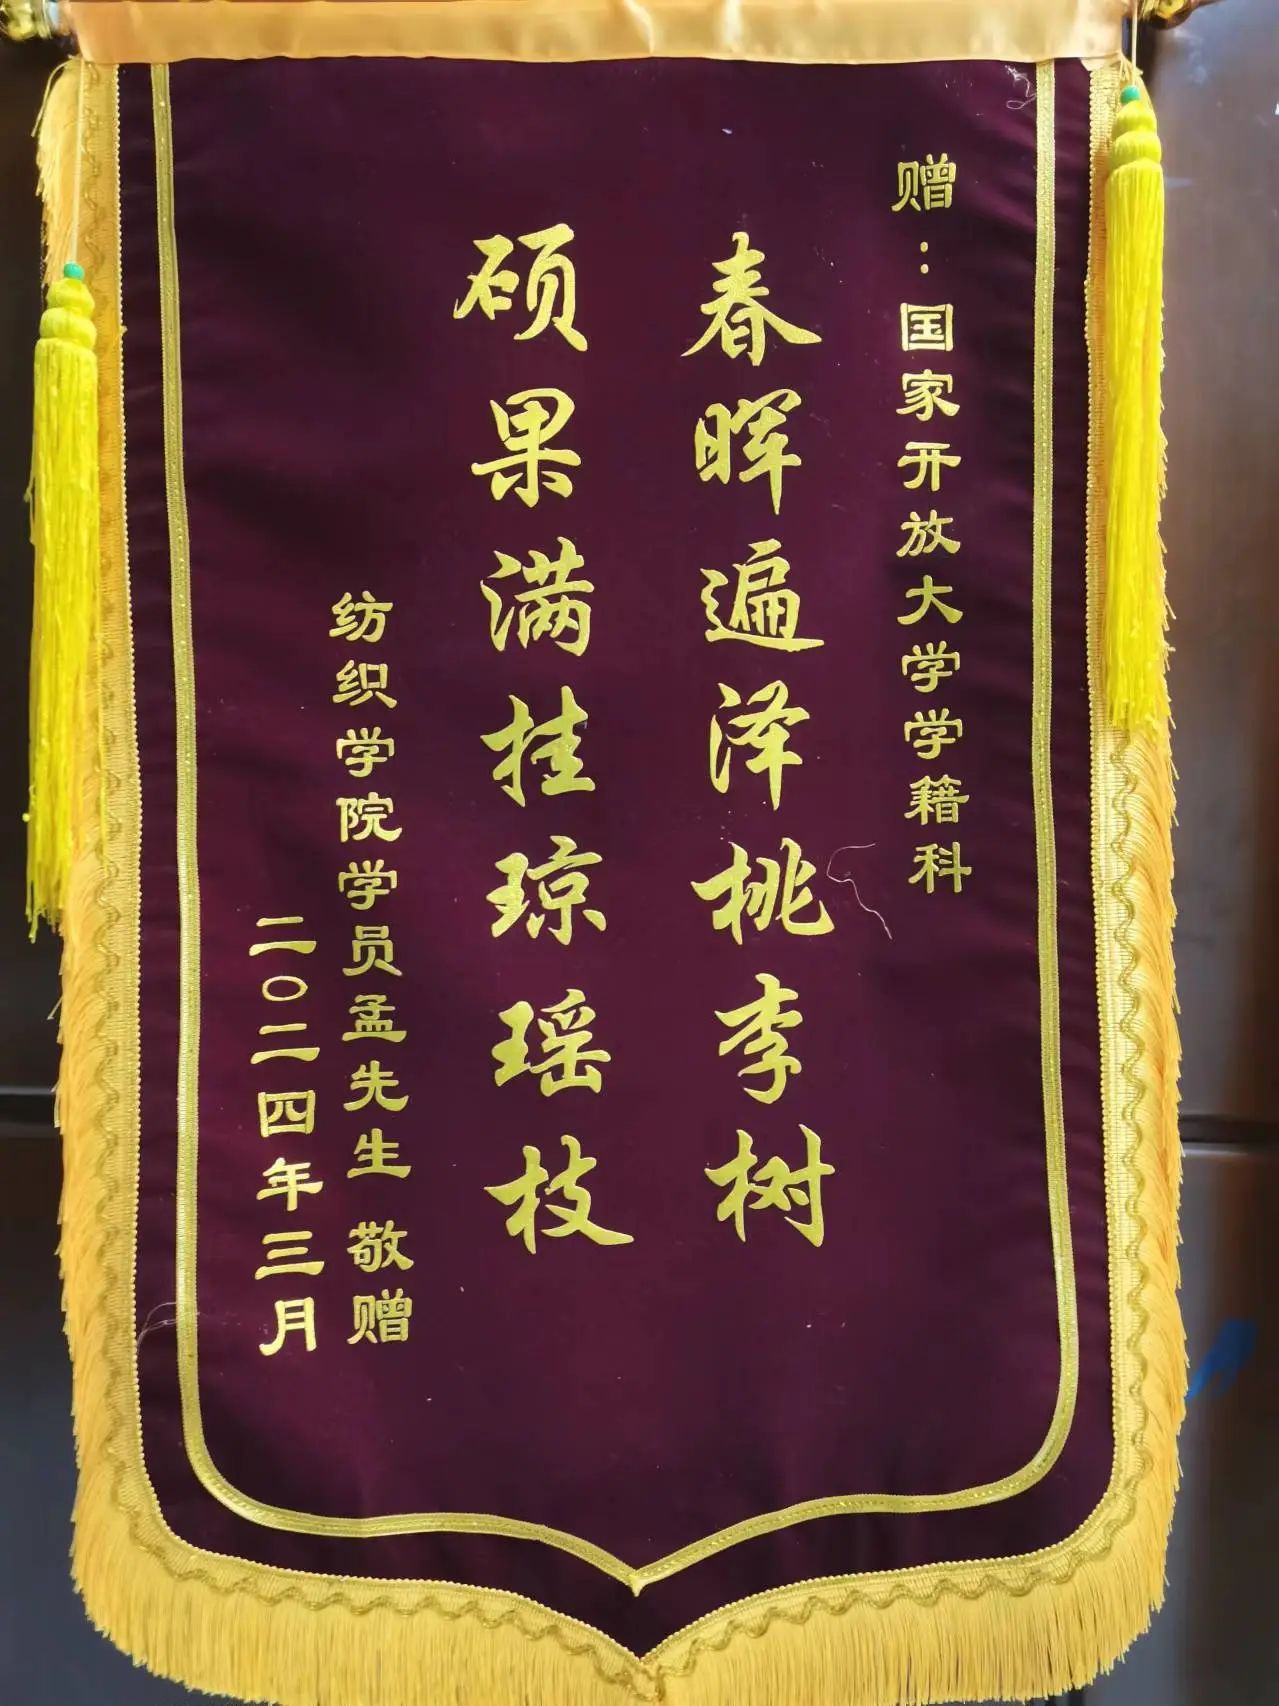 赠：国家开放大学学籍科
春晖遍泽桃李树
硕果满挂琼瑶枝
纺织学院学员孟先生 敬赠
二〇二四年三月